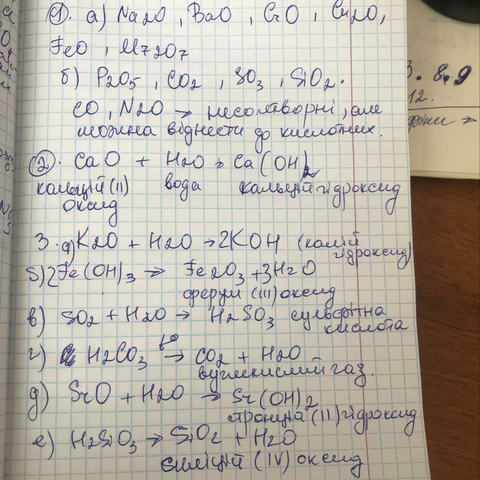 ①. а) Na2O, BaO, CrO, Cu2O,
FeO, Mn2O7
б) P2O5, CO2, SO3, SiO2.
CO, N2O → несолетворні, але
можна віднести до кислотних.
②. CaO + H2O → Ca(OH)2
кальцій (II) вода кальцій гідроксид
оксид
3. а) K2O + H2O → 2KOH (калій
гідроксид)
б) 2Fe(OH)3 → Fe2O3 + 3H2O
ферум (III) оксид
в) SO2 + H2O → H2SO3 сульфітна
кислота
г) H2CO3 t° → CO2 + H2O
вуглекислий газ.
д) SrO + H2O → Sr(OH)2
стронцій (II) гідроксид
е) H2SiO3 → SiO2 + H2O
силіцій (IV) оксид
3. 8.9
12.